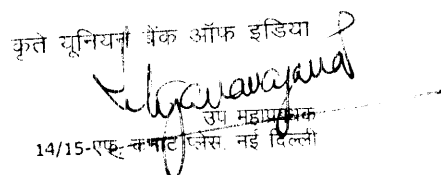 कृते यूनियन बैंक ऑफ इंडिया
उप महाप्रबन्धक
14/15-एफ, कनाट प्लेस, नई दिल्ली